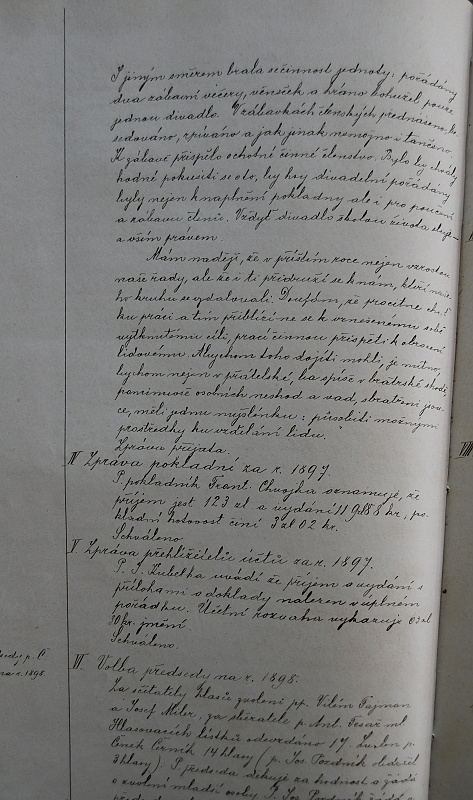 I jiným směrem brala se činnost jednoty: pořádány
dva zábavní večery, věneček a hráno bohužel pouze
jednou divadlo. V zábavkách členských přednášeno, be-
sedováno, zpíváno a jak jinak nemožno i tančeno.
K zábavě přispělo ochotně činné členstvo. Bylo by chvály
hodné pokusiti se o to, by hry divadelní pořádány
byly nejen k naplnění pokladny ale i pro poučení
a zábavu členů. Vždyť divadlo školou života sluje
a vším právem.
Mám naději, že v příštím roce nejen vzrostou
naše řady, ale že i ti přidruží se k nám, kteří
ho kruhu se vzdalovali. Doufám, že procitne chuť
ku práci a tím přiblížíme se k vznešenému sobě
vytknutému cíli, prací činnou přispěti k obrození
lidovému. Abychom toho dojíti mohli, je nutno,
bychom nejen v přátelské, ba spíše v bratrské shodě,
pominuvše osobních neshod a vad, sbratřeni jsou-
ce, měli jednu myšlénku: působiti možnými
prostředky ku vzdělání lidu."
Zpráva přijata.
IV Zpráva pokladní za r. 1897.
P. pokladník Frant. Chvojka oznamuje, že
příjem jest 123 zl a vydání 119 zl 88 kr, po-
kladní hotovost činí 3 zl 02 kr.
Schváleno
V Zpráva přehlížitelů účtů za r. 1897.
P. J. Kubelka uvádí že příjem a vydání s
přílohami a doklady nalezen v úplném
pořádku. Účetní rozvaha vykazuje zl
30 kr. jmění.
Schváleno.
předsedy p. Č
na r. 1898.
VI Volba předsedy na r. 1898.
Za sčitatele hlasů zvoleni pp. Vilém Fajman
a Josef Miler, za sběratele p. Ant. Tesař ml
Hlasovacích lístků odevzdáno 17. Zvolen p.
Čeněk Černík 14 hlasy (p. Jos. Pozdník obdržel
3 hlasy). P. předseda děkuje za hodnost a žádá
o zvolení mladší osoby. P. Jos. Pozdník